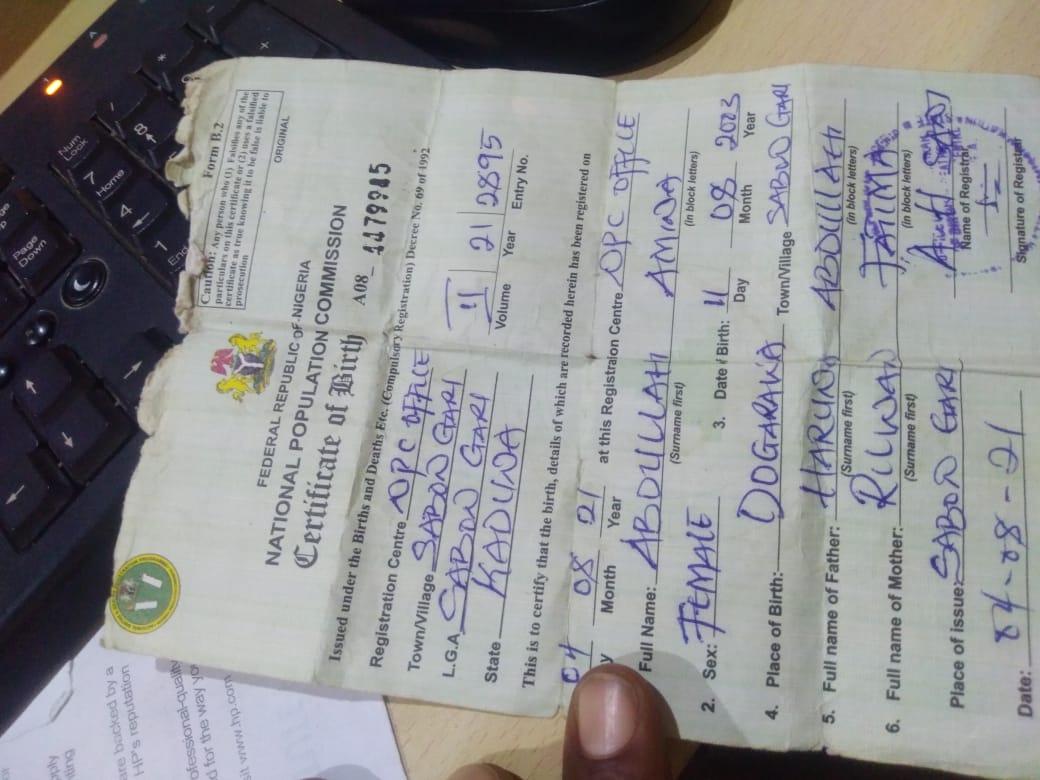 Form B.2
Caution: Any person who (1) Falsifies any of the
particulars on this certificate or (2) uses a falsified
certificate as true knowing it to be false is liable to
prosecution
ORIGINAL
FEDERAL REPUBLIC OF NIGERIA
NATIONAL POPULATION COMMISSION
Certificate of Birth A08-
Issued under the Births and Deaths Etc. (Compulsory Registration) Decree No. 69 of 1992
Registration Centre NPC OFFICE
Town/Village SABON GARI II 21 2895
L.G.A. SABON GARI Volume Year Entry No.
State KADUNA
This is to certify that the birth, details of which are recorded herein has been registered on
04 08 21 at this Registraion Centre NPC OFFICE
y Month Year
Full Name: ABDULLAHI AMINA
(Surname first) (in block letters)
2. Sex: FEMALE 3. Date of Birth: 11 08 2003
Day Month Year
4. Place of Birth: DOGARAWA Town/Village SABON GARI
5. Full name of Father: HARUNA ABDULLAHI
(Surname first) (in block letters)
6. Full name of Mother: RILWAN FATIMA
(Surname first) (in block letters)
Place of issue: SABON GARI
Name of Registrar
Date: 04-08-21
Signature of Registrar
Num Lock
7 Home
8
4
1 End
Page Down
*
+
are backed by a
HP's reputation